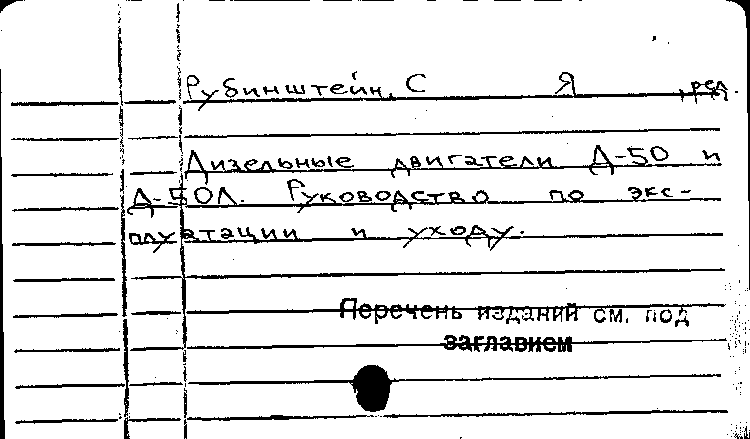 Рубинштейн, С Я , ред.
Дизельные двигатели Д-50 и
Д-50Л. Руководство по экс-
плуатации и уходу.
Перечень изданий см. под
заглавием